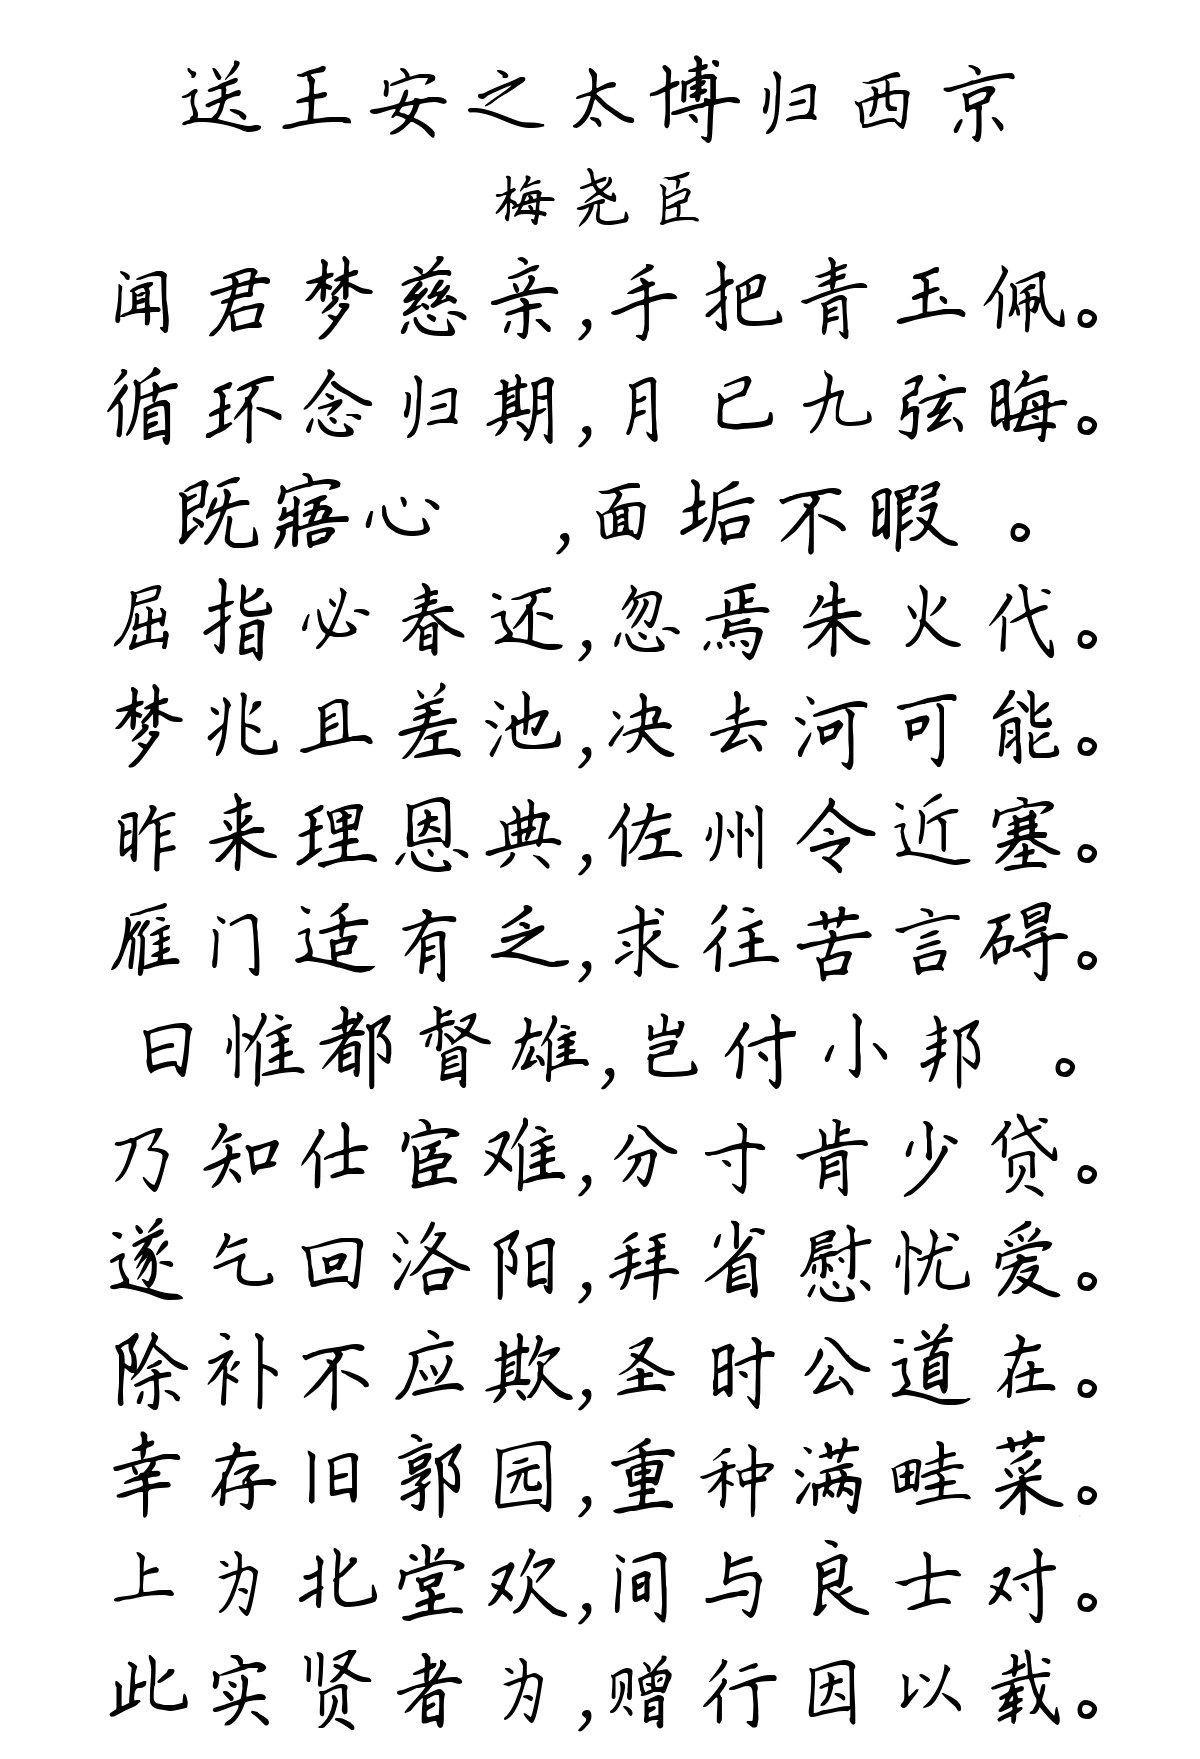 送王安之太博归西京
梅尧臣
闻君梦慈亲,手把青玉佩。
循环念归期,月已九弦晦。
既寤心 ,面垢不暇 。
屈指必春还,忽焉朱火代。
梦兆且差池,决去河可能。
昨来理恩典,佐州令近塞。
雁门适有乏,求往苦言碍。
曰惟都督雄,岂付小邦 。
乃知仕宦难,分寸肯少贷。
遂乞回洛阳,拜省慰忧爱。
除补不应欺,圣时公道在。
幸存旧郭园,重种满畦菜。
上为北堂欢,间与良士对。
此实贤者为,赠行因以载。